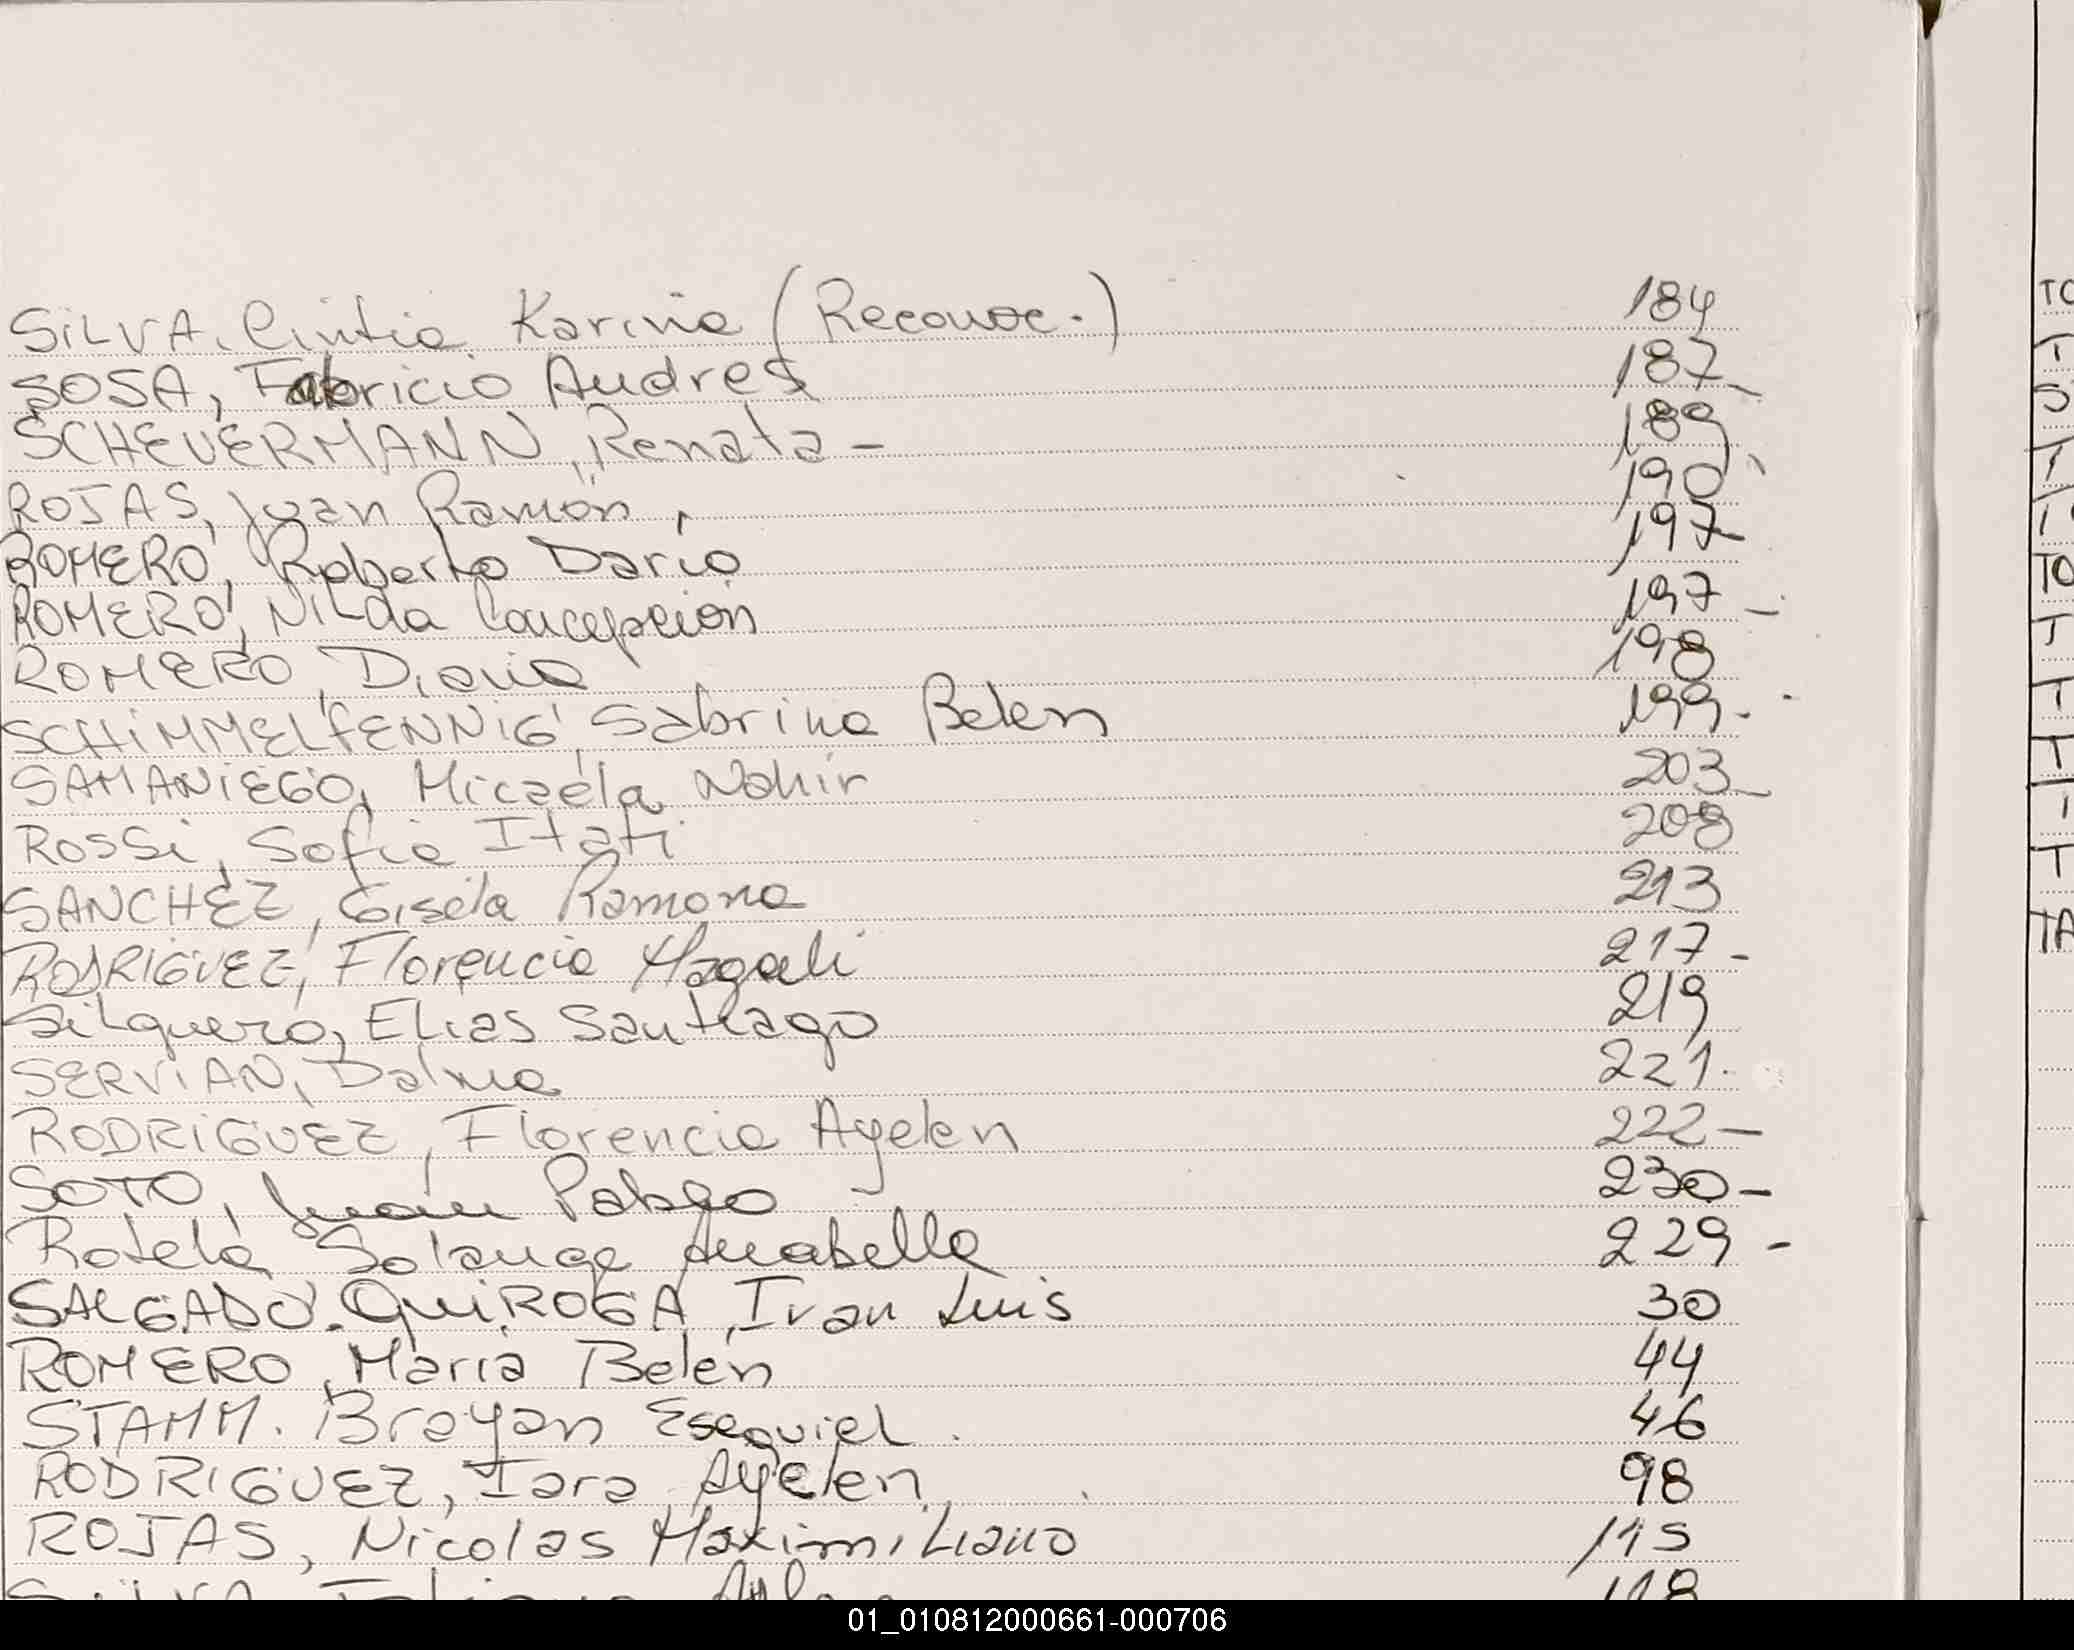 SILVA, Cintia Karina (Reconoc.) 184
SOSA, Fabricio Andres 187-
SCHEVERMANN, Renata - 189
ROJAS, Juan Ramón, 190
ROMERO, Roberto Darío 197
ROMERO, NILda Concepcion 197-
ROMERO, Diana 198
SCHIMMELFENNIG, Sabrina Belen 199-
SAMANIEGO, Micaela Nahir 203-
ROSSI, Sofia Itati 208
SANCHEZ, Gisela Ramona 213
RODRIGUEZ, Florencia Magali 217-
SiLguero, Elias Santiago 219
SERVIAN, Dalma 221.
RODRIGUEZ, Florencia Ayelen 222-
SOTO, Juan Pablo 230-
Rotela Solange Anabella 229-
SALGADO. QUIROGA, Ivan Luis 30
ROMERO, Maria Belén 44
STAMM. Brayan Esequiel. 46
RODRIGUEZ, Iara Ayelen, 98
ROJAS, Nicolas Maximiliano 115
SILVA 118
TO
T
T
TO
T
T
T
T
T
TA
01_010812000661-000706